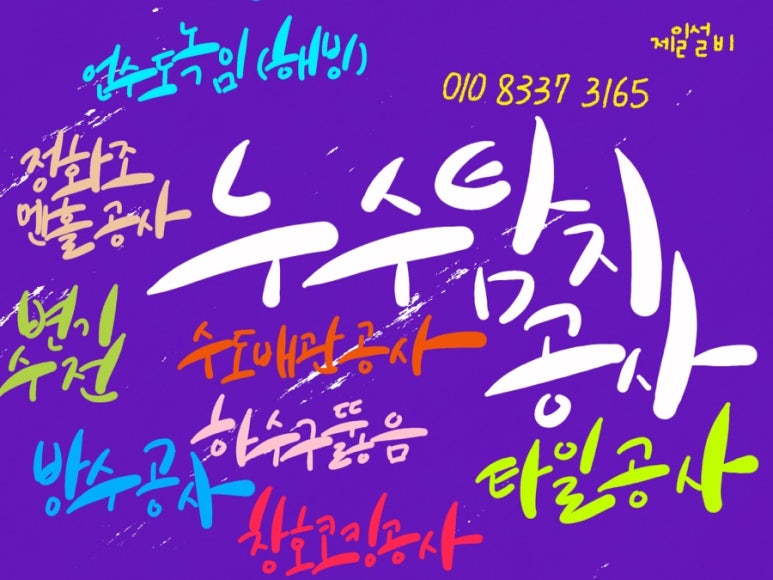 언수도녹임(해빙)
제일설비
010 8337 3165
정화조
멘홀공사
누수탐지
공사
변기
수전
수도배관공사
하수구뚫음
방수공사
타일공사
창호코킹공사